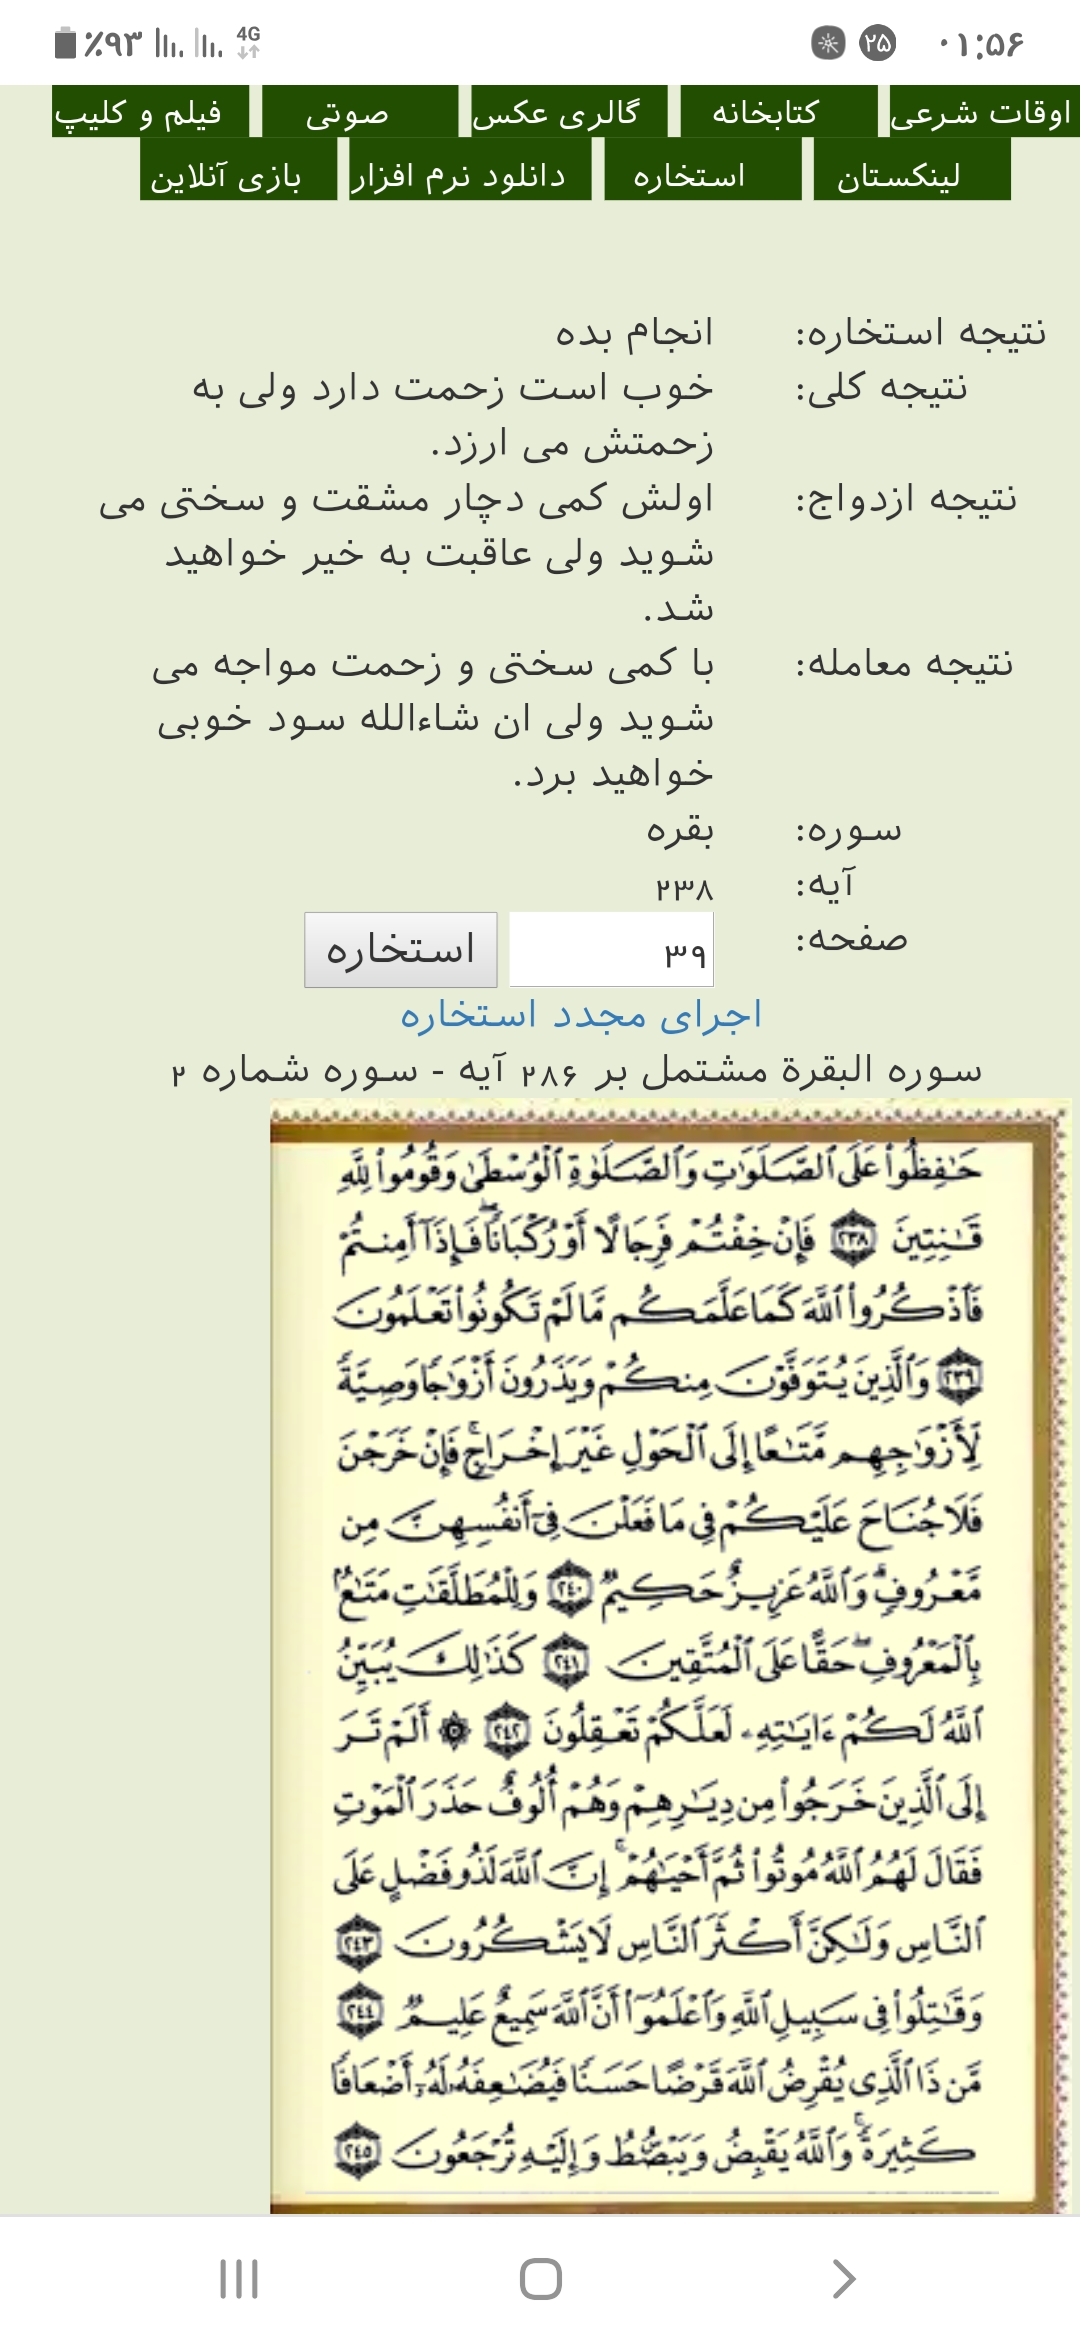 ٪۹۳ 4G ۲۵ ۰۱:۵۶
اوقات شرعی کتابخانه گالری عکس صوتی فیلم و کلیپ
لینکستان استخاره دانلود نرم افزار بازی آنلاین
نتیجه استخاره: انجام بده
نتیجه کلی: خوب است زحمت دارد ولی به
زحمتش می ارزد.
نتیجه ازدواج: اولش کمی دچار مشقت و سختی می
شوید ولی عاقبت به خیر خواهید
شد.
نتیجه معامله: با کمی سختی و زحمت مواجه می
شوید ولی ان شاءالله سود خوبی
خواهید برد.
سوره: بقره
آیه: ۲۳۸
صفحه: ۳۹ استخاره
اجرای مجدد استخاره
سوره البقرة مشتمل بر ۲۸۶ آیه - سوره شماره ۲
حَـٰفِظُوا۟ عَلَى ٱلصَّلَوَٰتِ وَٱلصَّلَوٰةِ ٱلْوُسْطَىٰ وَقُومُوا۟ لِلَّهِ
قَـٰنِتِينَ ٢٣٨ فَإِنْ خِفْتُمْ فَرِجَالًا أَوْ رُكْبَانًا ۖ فَإِذَآ أَمِنتُمْ
فَٱذْكُرُوا۟ ٱللَّهَ كَمَا عَلَّمَكُم مَّا لَمْ تَكُونُوا۟ تَعْلَمُونَ
٢٣٩ وَٱلَّذِينَ يُتَوَفَّوْنَ مِنكُمْ وَيَذَرُونَ أَزْوَٰجًا وَصِيَّةً
لِّأَزْوَٰجِهِم مَّتَـٰعًا إِلَى ٱلْحَوْلِ غَيْرَ إِخْرَاجٍ ۚ فَإِنْ خَرَجْنَ
فَلَا جُنَاحَ عَلَيْكُمْ فِى مَا فَعَلْنَ فِىٓ أَنفُسِهِنَّ مِن
مَّعْرُوفٍ ۗ وَٱللَّهُ عَزِيزٌ حَكِيمٌ ٢٤٠ وَلِلْمُطَلَّقَـٰتِ مَتَـٰعٌۢ
بِٱلْمَعْرُوفِ ۖ حَقًّا عَلَى ٱلْمُتَّقِينَ ٢٤١ كَذَٰلِكَ يُبَيِّنُ
ٱللَّهُ لَكُمْ ءَايَـٰتِهِۦ لَعَلَّكُمْ تَعْقِلُونَ ٢٤٢ ۞ أَلَمْ تَرَ
إِلَى ٱلَّذِينَ خَرَجُوا۟ مِن دِيَـٰرِهِمْ وَهُمْ أُلُوفٌ حَذَرَ ٱلْمَوْتِ
فَقَالَ لَهُمُ ٱللَّهُ مُوتُوا۟ ثُمَّ أَحْيَـٰهُمْ ۚ إِنَّ ٱللَّهَ لَذُو فَضْلٍ عَلَى
ٱلنَّاسِ وَلَـٰكِنَّ أَكْثَرَ ٱلنَّاسِ لَا يَشْكُرُونَ ٢٤٣
وَقَـٰتِلُوا۟ فِى سَبِيلِ ٱللَّهِ وَٱعْلَمُوٓا۟ أَنَّ ٱللَّهَ سَمِيعٌ عَلِيمٌ ٢٤٤
مَّن ذَا ٱلَّذِى يُقْرِضُ ٱللَّهَ قَرْضًا حَسَنًا فَيُضَـٰعِفَهُۥ لَهُۥٓ أَضْعَافًا
كَثِيرَةً ۚ وَٱللَّهُ يَقْبِضُ وَيَبْصُۜطُ وَإِلَيْهِ تُرْجَعُونَ ٢٤٥